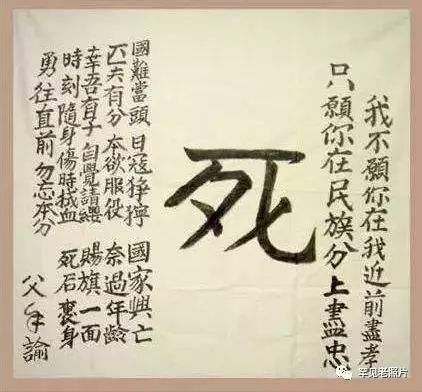 我不願你在我近前盡孝
只願你在民族分上盡忠
死
國難當頭 日寇猙獰 國家興亡
匹夫有分 本欲服役 奈過年齡
幸吾有子 自覺請纓 賜旗一面
時刻隨身 傷時拭血 死后裹身
勇往直前 勿忘本分
父手諭
罕见老照片